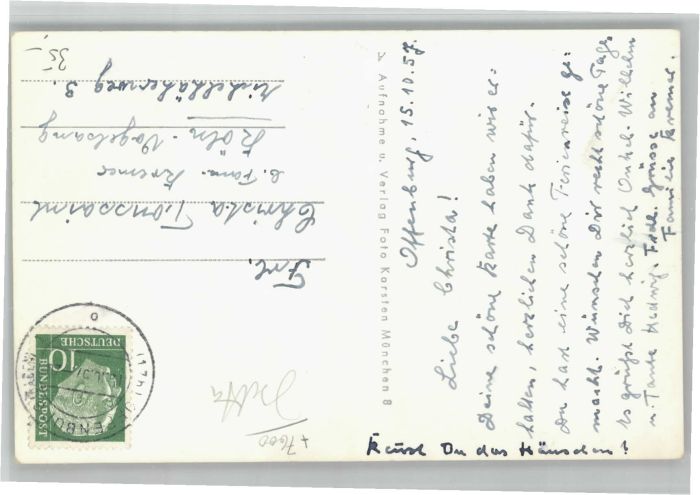 Offenburg, 15.10.57.
Liebe Christa!
Deine schöne Karte haben wir er-
halten, herzlichen Dank dafür.
Du hast eine schöne Ferienreise ge-
macht. Wünschen Dir recht schöne Tage.
Es grüßt Dich herzlich Onkel Wilhelm
u. Tante Hedwig. Frdl. Grüsse an
Familie Kremer.
Kennst Du das Häuschen?
Aufnahme u. Verlag Foto Karsten München 8
Frl.
Christa Toussaint
b. Fam. Kremer
Köln-Vogelsang
3.
35,-
10
DEUTSCHE
BUNDESPOST
+ 7600